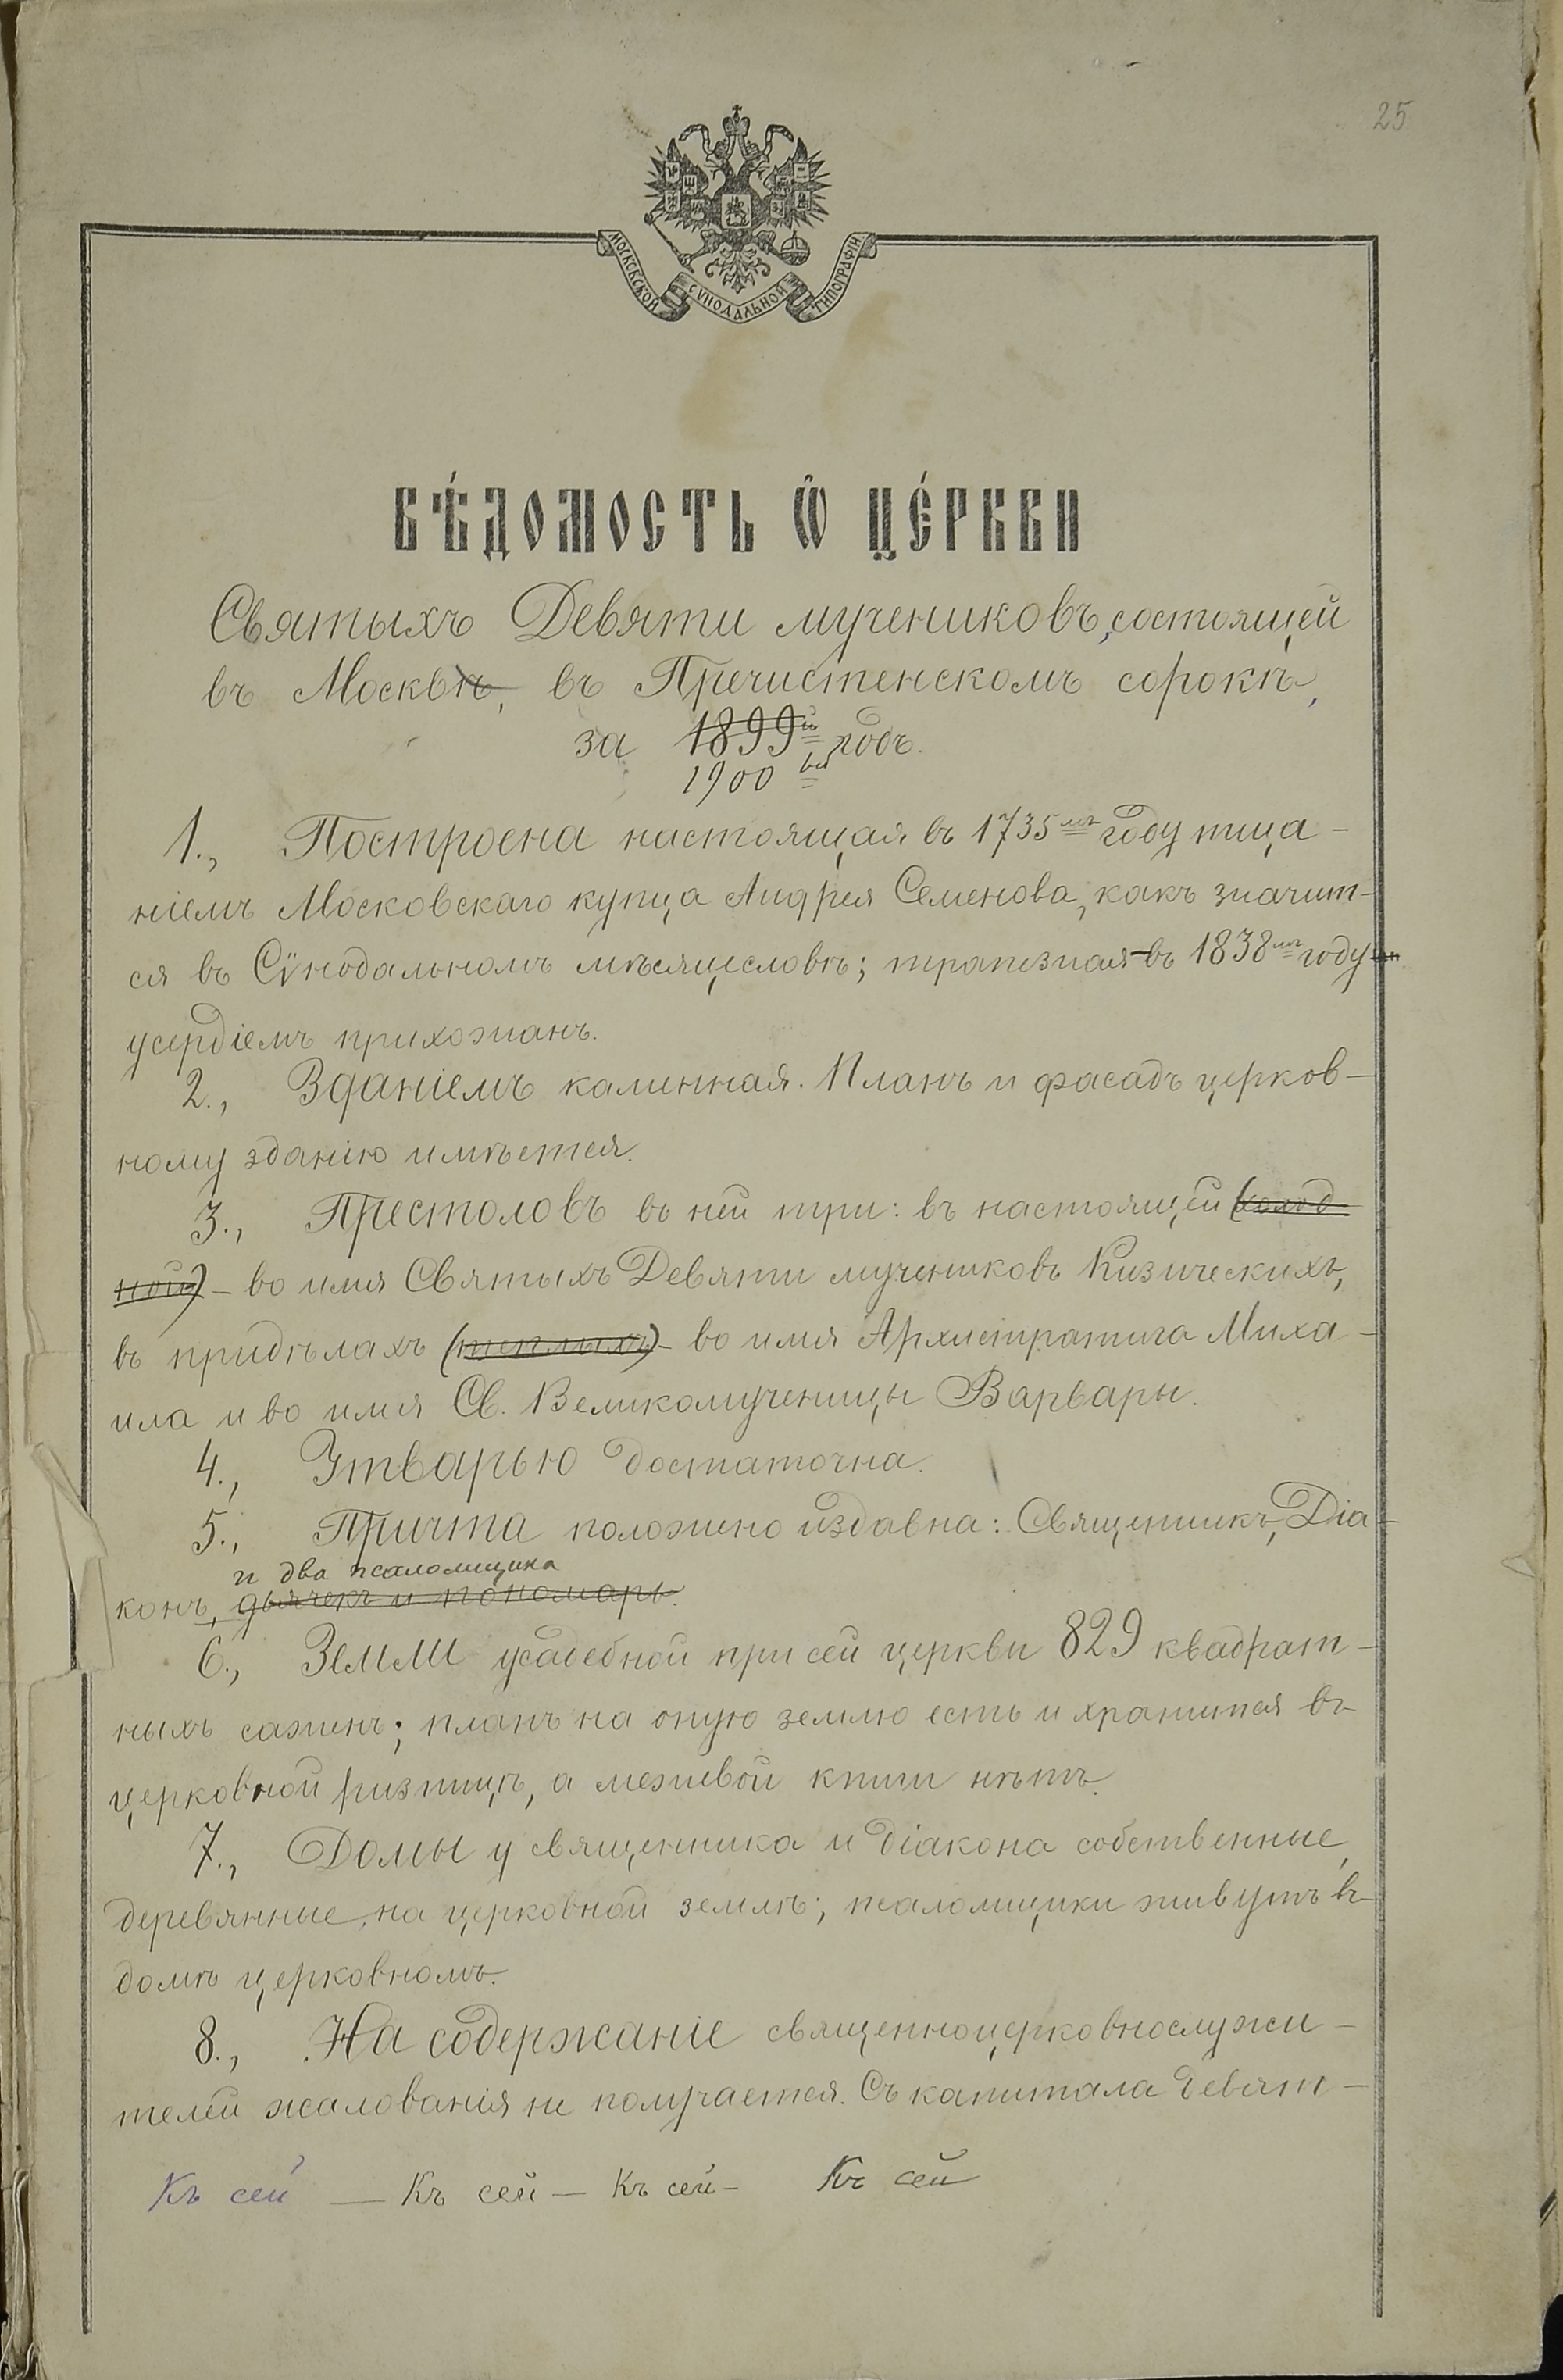 25
МОСКОВСКОЙ СѴНОДАЛЬНОЙ ТИПОГРАФІИ
ВѢ́ДОМОСТЬ Ѽ ЦЕ́РКВИ
Святыхъ Девяти мучениковъ, состоящей
въ Москвѣ, въ Пречистенскомъ сорокѣ,
за 1899й годъ.
1900ый
1., Построена настоящая въ 1735мъ году тща-
ніемъ Московскаго купца Андрея Семенова, какъ значит-
ся въ Сѵнодальномъ мѣсяцесловѣ; трапезная въ 1838мъ году
усердіемъ прихожанъ.
2., Зданіемъ каменная. Планъ и фасадъ церков-
ному зданію имѣется.
3., Престоловъ въ ней три: въ настоящей (холод
ной) - во имя Святыхъ Девяти мучениковъ Кизическихъ,
въ придѣлахъ (теплыхъ) - во имя Архистратига Миха-
ила и во имя Св. Великомученицы Варвары.
4., Утварью достаточна.
5., Причта положено издавна: Священникъ, Діа-
и два псаломщика
конъ, дьячекъ и пономарь.
6., Земли усадебной при сей церкви 829 квадрат-
ныхъ сажень; планъ на оную землю есть и хранится въ
церковной ризницѣ, а межевой книги нѣтъ.
7., Домы у священника и діакона собственные,
деревянные, на церковной землѣ; псаломщики живутъ въ
домѣ церковномъ.
8., На содержаніе священноцерковнослужи-
телей жалованія не получается. Съ капитала девят-
Къ сей — Къ сей — Къ сей - Къ сей